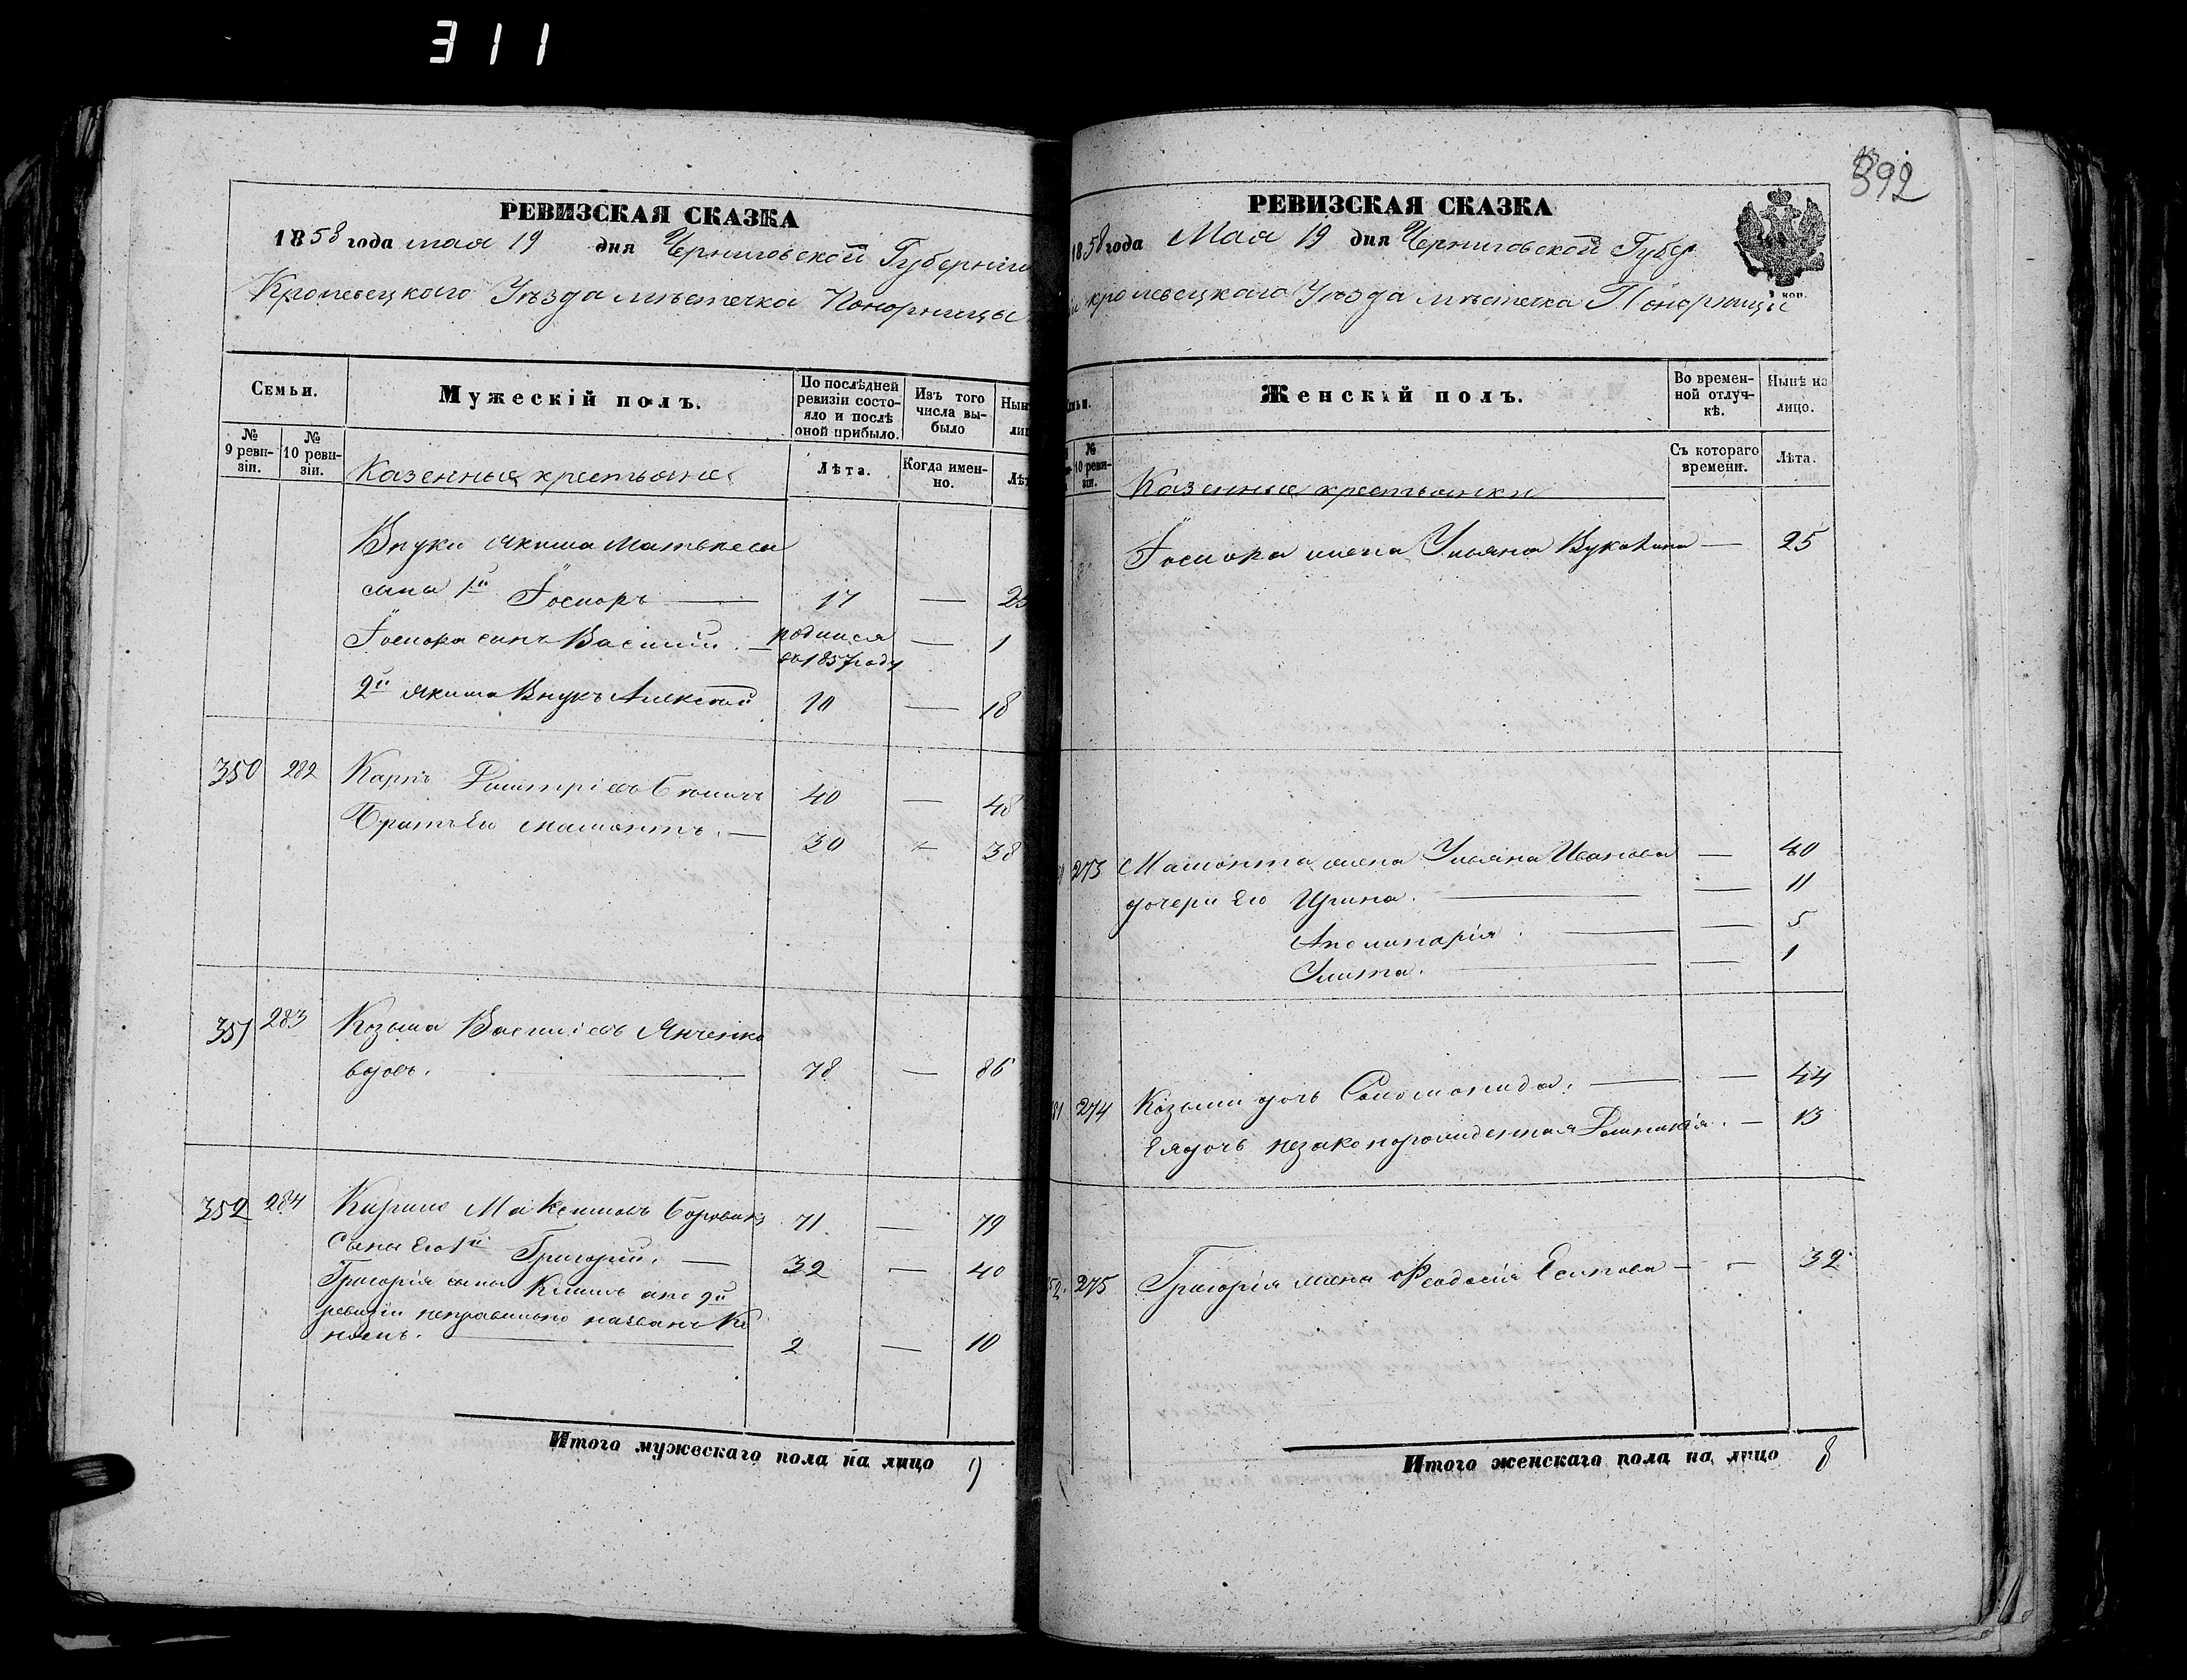 311
РЕВИЗСКАЯ СКАЗКА
1858 года мая 19 дня Черниговской Губерніи
Кролевецкаго Уѣзда мѣстечка Понорницы
Семьи.
Мужескій полъ.
По послѣдней ревизіи состояло и послѣ оной прибыло.
Изъ того числа выбыло
№ 9 ревизіи.
№ 10 ревизіи.
Казенные крестьяне
Лѣта.
Когда именно.
Внуки Якима Матвеева
сына 1й Іосипъ — 17 —
Іосипа сынъ Василий. — родился въ 1857 году — 1
2й Якима Внукъ Алексѣй 10 — 18
350 282 Карпъ Дмитріевъ 40 — 48
Братъ Его Мамонтъ. — 30 — 38
351 283 Козьма Василіевъ Янченко
вдовъ. — 78 — 86
352 284 Кирило Максимовъ Боровик 71 — 79
Сыны Его 1й Григорій. — 32 — 40
Григорія сынъ Климъ по 9й
ревизіи неправильно названъ Ко
номъ. — 2 — 10
Итого мужескаго пола на лицо 9
392
РЕВИЗСКАЯ СКАЗКА
1858 года Мая 19 дня Черниговской Губер
кролевецкаго Уѣзда мѣстечка Понорницы
Женскій полъ.
Во временной отлучкѣ.
Нынѣ на лицо.
№ 10 ревизіи.
Казенные крестьянки
Съ котораго времени.
Лѣта.
жена Ульяна — 25
273 Мамонта жена Ульяна Иванова — 40
дочери Его Ирина. — — 11
Аполинарія. — — 5
Улита. — — 1
274 Козьмы дочь Соломонида. — — 44
Ея дочь незаконорожденная — 13
275 Григорія жена Феодосія Есипова — — 32
Итого женскаго пола на лицо 8